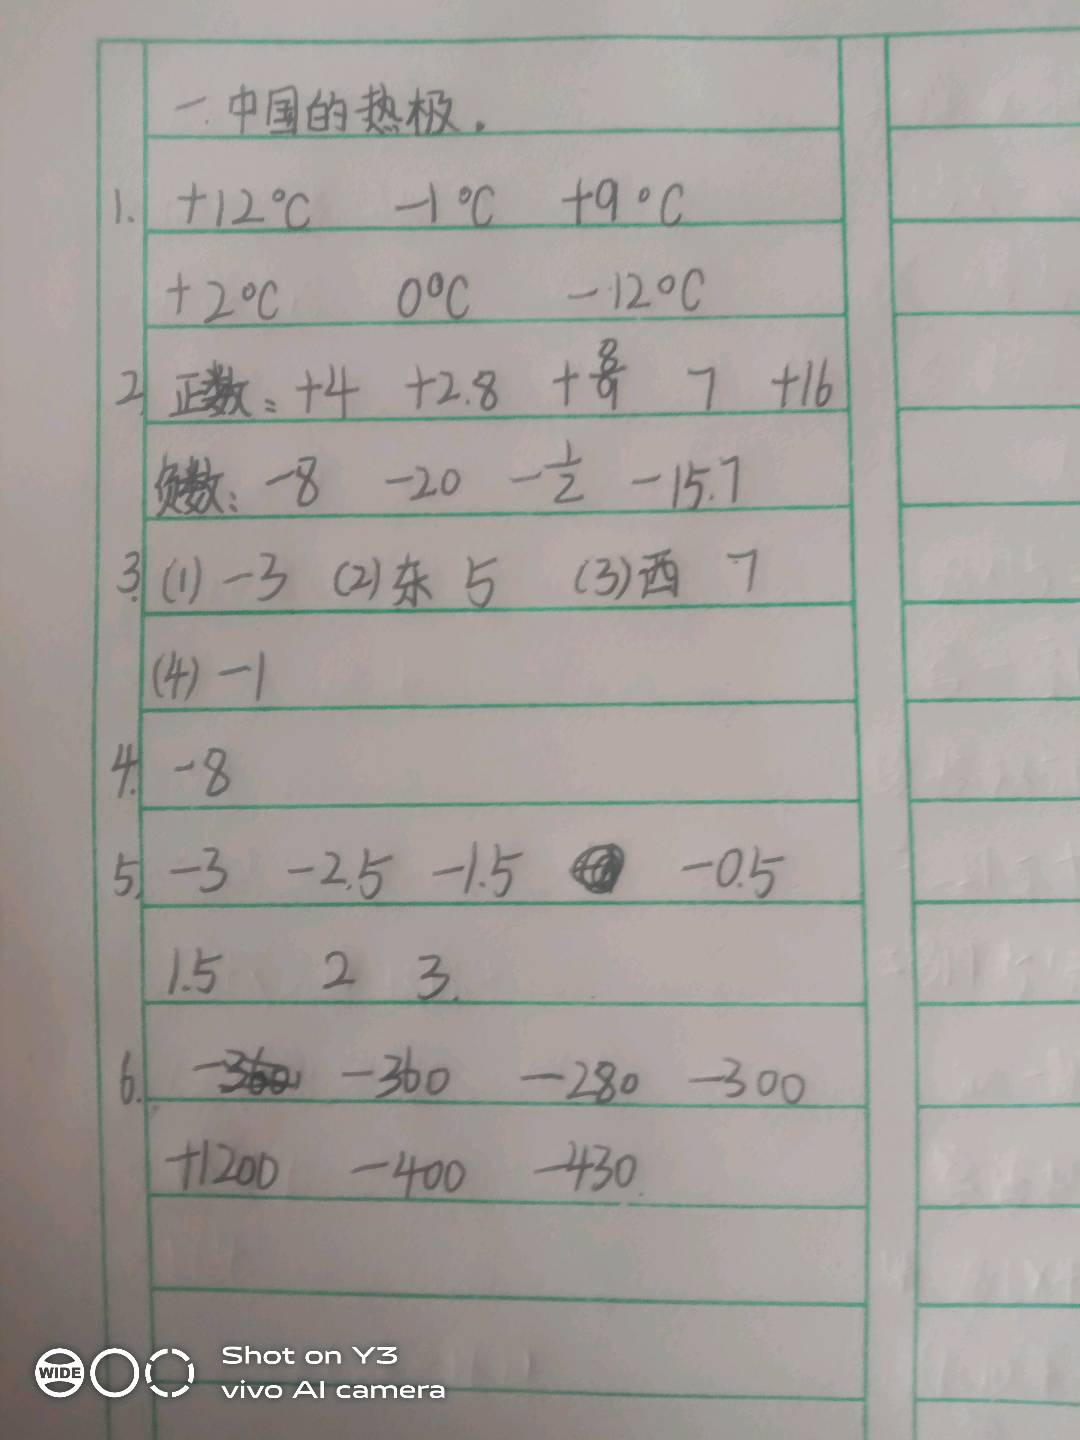 一. 中国的热极.
1. +12℃ -1℃ +9℃
+2℃ 0℃ -12℃
2. 正数: +4 +2.8 +8/9 7 +16
负数: -8 -20 -1/2 -15.7
3. (1) -3 (2) 东 5 (3) 西 7
(4) -1
4. -8
5. -3 -2.5 -1.5 -0.5
1.5 2 3.
6. -360 -280 -300
+1200 -400 -430.
WIDE Shot on Y3
vivo AI camera